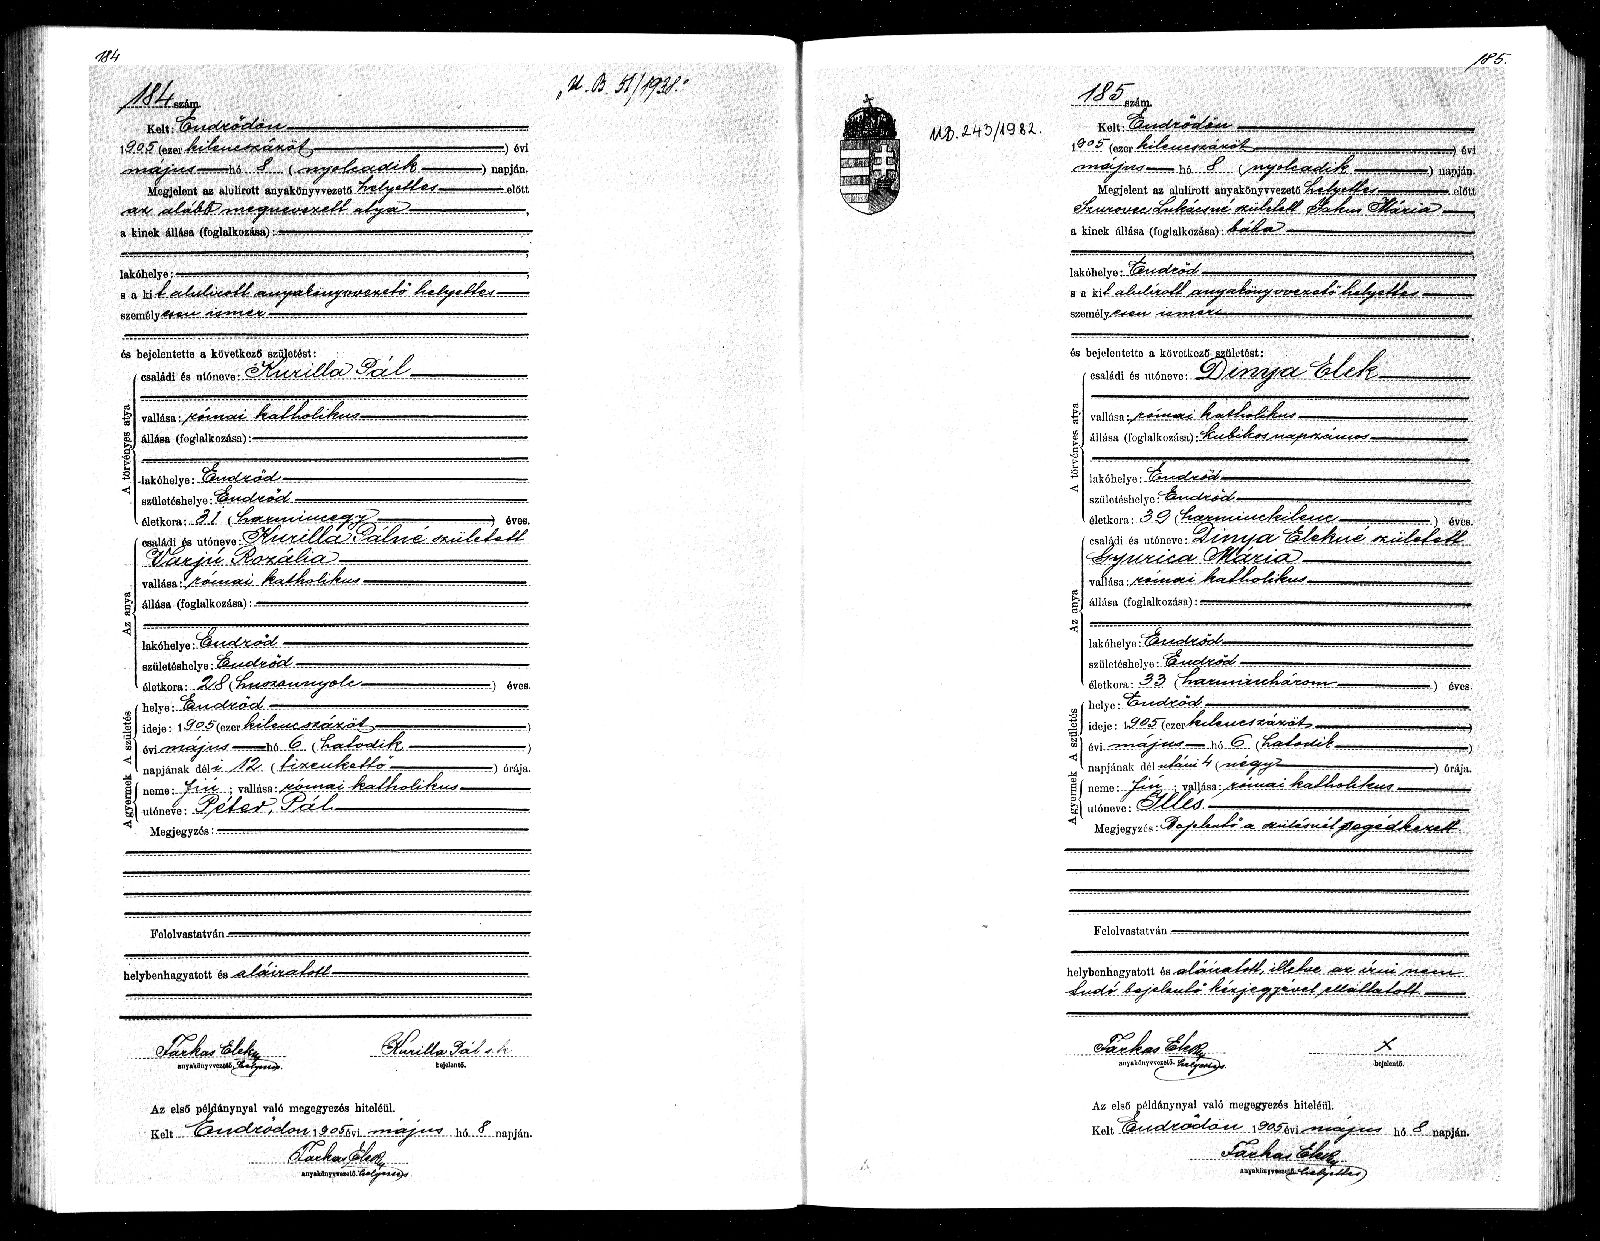 184
184 szám.
„U. B. 51/1938.”
Kelt: Endrődön
1905 (ezer kilenczszázöt) évi
május hó 8 (nyolcadik) napján.
Megjelent az alulirott anyakönyvvezető helyettes előtt
az alább megnevezett atya,
a kinek állása (foglalkozása):
lakóhelye:
s a kit alulirott anyakönyvvezető helyettes
személyesen ismer
és bejelentette a következő születést:
A törvényes atya
családi és utóneve: Kurilla Pál
vallása: római katholikus
állása (foglalkozása):
lakóhelye: Endrőd
születéshelye: Endrőd
életkora: 31 (harmincegy) éves.
Az anya
családi és utóneve: Kurilla Pálné született
Varjú Rozália
vallása: római katholikus
állása (foglalkozása):
lakóhelye: Endrőd
születéshelye: Endrőd
életkora: 28 (huszonnyolc) éves.
A születés
helye: Endrőd
ideje: 1905 (ezer kilencszázöt)
évi május hó 6 (hatodik)
napjának déli 12 (tizenkettő) órája.
A gyermek
neme: fiú; vallása: római katholikus
utóneve: Péter, Pál
Megjegyzés:
Felolvastatván
helybenhagyatott és aláiratott
Farkas Elek Kurilla Pál s. k.
anyakönyvvezető helyettes bejelentő.
Az első példánynyal való megegyezés hiteléül.
Kelt Endrődön 1905 évi május hó 8 napján.
Farkas Elek
anyakönyvvezető helyettes
185.
185 szám.
UB. 243/1982.
Kelt: Endrődön
1905 (ezer kilencszázöt) évi
május hó 8 (nyolcadik) napján.
Megjelent az alulirott anyakönyvvezető helyettes előtt
Szurovec Lukácsné született Mária,
a kinek állása (foglalkozása): bába
lakóhelye: Endrőd
s a kit alulirott anyakönyvvezető helyettes
személyesen ismer
és bejelentette a következő születést:
A törvényes atya
családi és utóneve: Dinya Elek
vallása: római katholikus
állása (foglalkozása): kubikos napszámos
lakóhelye: Endrőd
születéshelye: Endrőd
életkora: 39 (harminckilenc) éves.
Az anya
családi és utóneve: Dinya Elekné született
Gyurica Mária
vallása: római katholikus
állása (foglalkozása):
lakóhelye: Endrőd
születéshelye: Endrőd
életkora: 33 (harminchárom) éves.
A születés
helye: Endrőd
ideje: 1905 (ezer kilencszázöt)
évi május hó 6 (hatodik)
napjának dél utáni 4 (négy) órája.
A gyermek
neme: fiú; vallása: római katholikus
utóneve: Illés
Megjegyzés: Bejelentő a szülésnél segédkezett.
Felolvastatván
helybenhagyatott és aláiratott, illetve az írni nem
tudó bejelentő kézjegyével elláttatott
Farkas Elek X
anyakönyvvezető helyettes bejelentő.
Az első példánynyal való megegyezés hiteléül.
Kelt Endrődön 1905 évi május hó 8 napján.
Farkas Elek
anyakönyvvezető helyettes